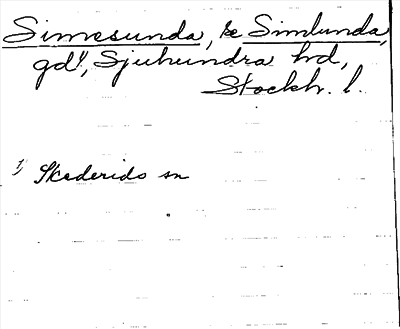 Simesunda, se Simlunda,
gd¹⁾, Sjuhundra hrd,
Stockh. l.
1) Skederids sn